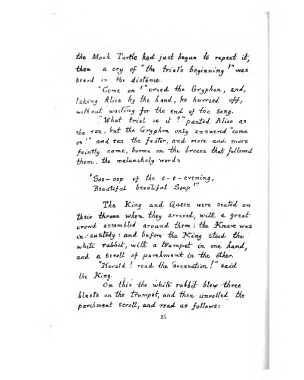 the Mock Turtle had just begun to repeat it,
when a cry of "the trial's beginning!" was
heard in the distance.
"Come on!" cried the Gryphon, and,
taking Alice by the hand, he hurried off,
without waiting for the end of the song.
"What trial is it?" panted Alice as
she ran, but the Gryphon only answered "come
on!" and ran the faster, and more and more
faintly came, borne on the breeze that followed
them, the melancholy words
"Soo-oop of the e-e-evening,
Beautiful beautiful Soup!"
The King and Queen were seated on
their throne when they arrived, with a great
crowd assembled around them: the Knave was
in custody: and before the King stood the
white rabbit, with a trumpet in one hand,
and a scroll of parchment in the other.
"Herald! read the accusation!" said
the King.
On this the white rabbit blew three
blasts on the trumpet, and then unrolled the
parchment scroll, and read as follows: